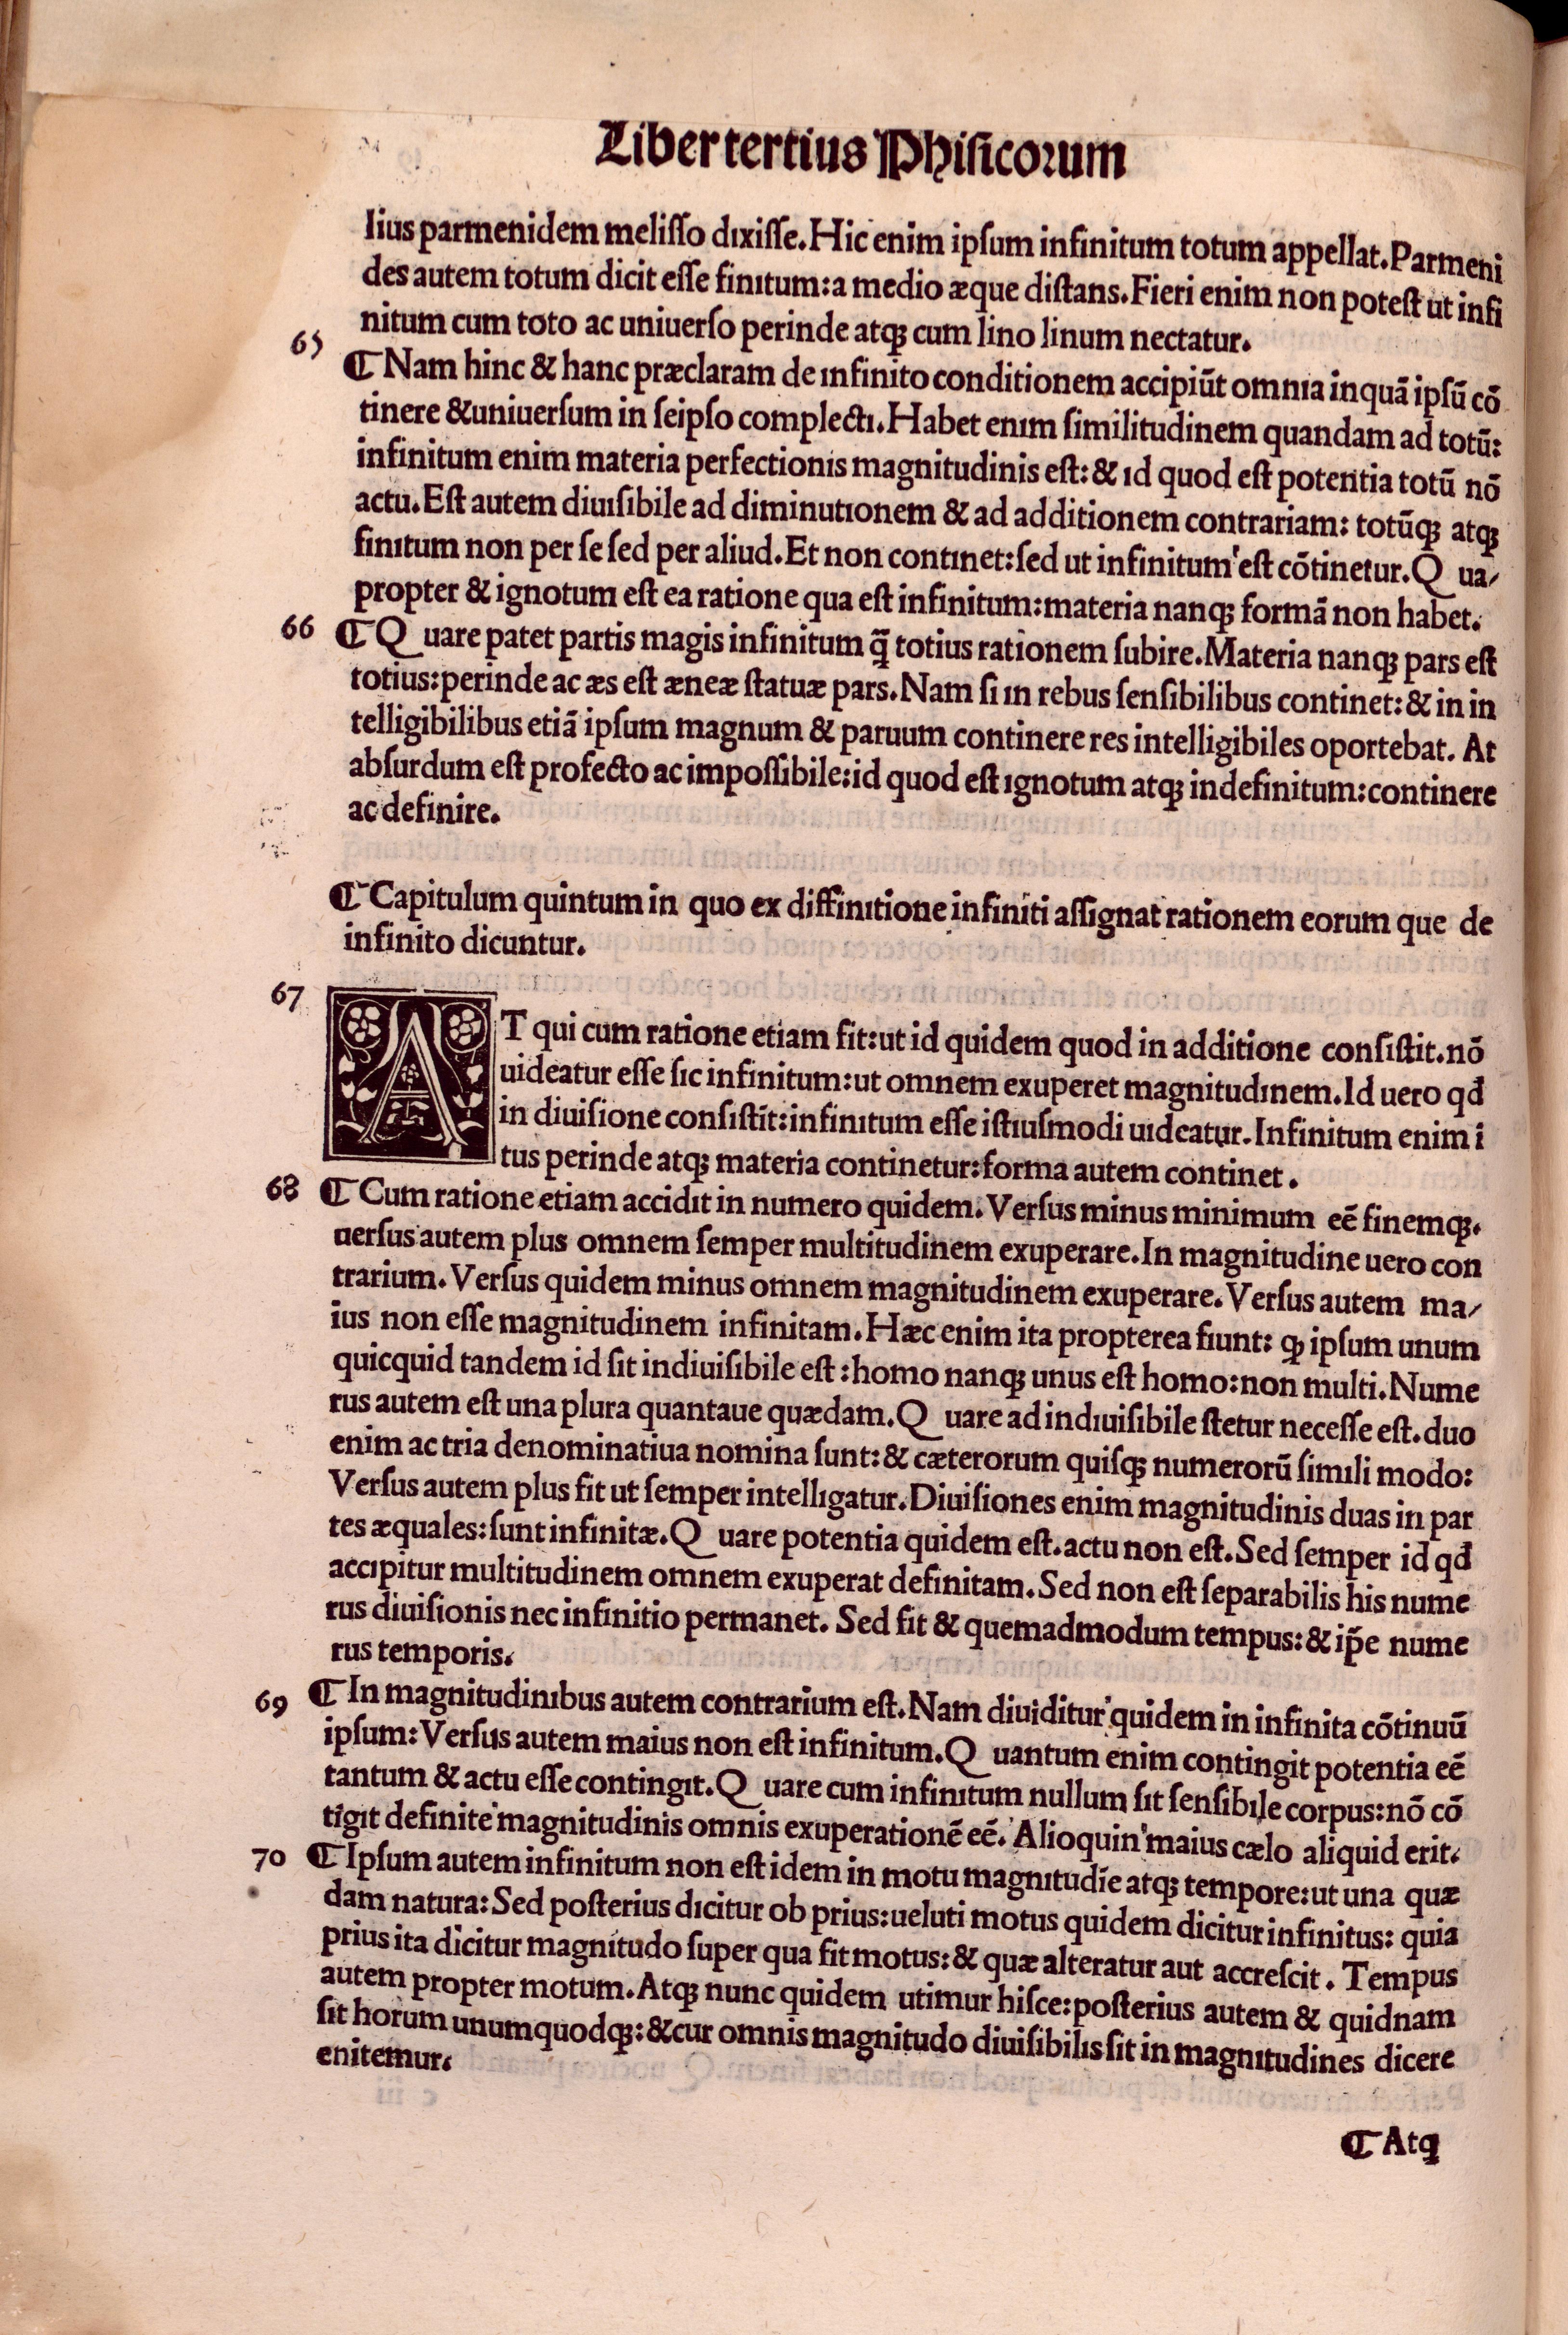 Liber tertius Phisicorum
lius parmenidem melisso dixisse. Hic enim ipsum infinitum totum appellat. Parmeni
des autem totum dicit esse finitum: a medio æque distans. Fieri enim non potest ut infi
nitum cum toto ac uniuerso perinde atqꝫ cum lino linum nectatur.
65
¶ Nam hinc & hanc præclaram de infinito conditionem accipiūt omnia inquā ipsū cō
tinere & uniuersum in seipso complecti. Habet enim similitudinem quandam ad totū:
infinitum enim materia perfectionis magnitudinis est: & id quod est potentia totū nō
actu. Est autem diuisibile ad diminutionem & ad additionem contrariam: totūqꝫ atqꝫ
finitum non per se sed per aliud. Et non continet: sed ut infinitum est cōtinetur. Qua-
propter & ignotum est ea ratione qua est infinitum: materia nanqꝫ formā non habet.
66 ¶ Quare patet partis magis infinitum q̄ totius rationem subire. Materia nanqꝫ pars est
totius: perinde ac æs est æneæ statuæ pars. Nam si in rebus sensibilibus continet: & in in
telligibilibus etiā ipsum magnum & paruum continere res intelligibiles oportebat. At
absurdum est profecto ac impossibile: id quod est ignotum atqꝫ indefinitum: continere
ac definire.
¶ Capitulum quintum in quo ex diffinitione infiniti assignat rationem eorum que de
infinito dicuntur.
67
AT qui cum ratione etiam fit: ut id quidem quod in additione consistit. nō
uideatur esse sic infinitum: ut omnem exuperet magnitudinem. Id uero qđ
in diuisione consistīt: infinitum esse istiusmodi uideatur. Infinitum enim ī
tus perinde atqꝫ materia continetur: forma autem continet.
68 ¶ Cum ratione etiam accidit in numero quidem. Versus minus minimum eē finemqꝫ.
uersus autem plus omnem semper multitudinem exuperare. In magnitudine uero con
trarium. Versus quidem minus omnem magnitudinem exuperare. Versus autem ma-
ius non esse magnitudinem infinitam. Hæc enim ita propterea fiunt: qꝫ ipsum unum
quicquid tandem id sit indiuisibile est: homo nanqꝫ unus est homo: non multi. Nume
rus autem est una plura quantaue quædam. Quare ad indiuisibile stetur necesse est. duo
enim ac tria denominatiua nomina sunt: & cæterorum quisqꝫ numerorū simili modo:
Versus autem plus fit ut semper intelligatur. Diuisiones enim magnitudinis duas in par
tes æquales: sunt infinitæ. Quare potentia quidem est. actu non est. Sed semper id qđ
accipitur multitudinem omnem exuperat definitam. Sed non est separabilis his nume
rus diuisionis nec infinitio permanet. Sed fit & quemadmodum tempus: & ip̄e nume
rus temporis.
69 ¶ In magnitudinibus autem contrarium est. Nam diuiditur quidem in infinita cōtinuū
ipsum: Versus autem maius non est infinitum. Quantum enim contingit potentia eē
tantum & actu esse contingit. Quare cum infinitum nullum sit sensibile corpus: nō cō
tigit definite magnitudinis omnis exuperationē eē. Alioquin maius cælo aliquid erit.
70 ¶ Ipsum autem infinitum non est idem in motu magnitudīe atqꝫ tempore: ut una quæ
dam natura: Sed posterius dicitur ob prius: ueluti motus quidem dicitur infinitus: quia
prius ita dicitur magnitudo super qua fit motus: & quæ alteratur aut accrescit. Tempus
autem propter motum. Atqꝫ nunc quidem utimur hisce: posterius autem & quidnam
sit horum unumquodqꝫ: & cur omnis magnitudo diuisibilis sit in magnitudines dicere
enitemur.
¶ Atqꝫ